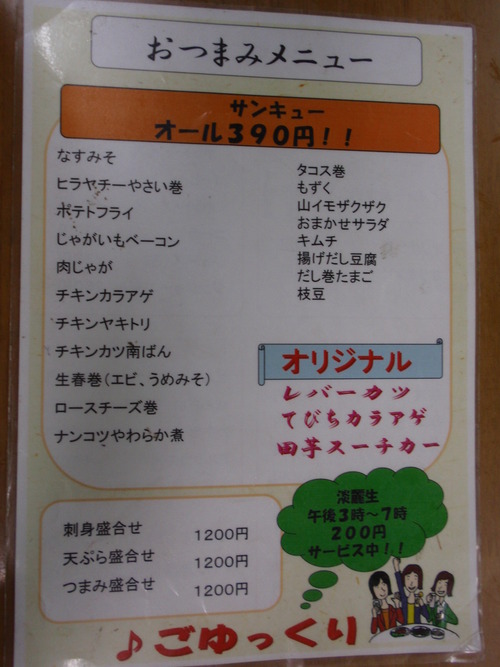 おつまみメニュー
サンキュー
オール390円!!
なすみそ
ヒラヤチーやさい巻
ポテトフライ
じゃがいもベーコン
肉じゃが
チキンカラアゲ
チキンヤキトリ
チキンカツ南ばん
生春巻(エビ、うめみそ)
ロースチーズ巻
ナンコツやわらか煮
タコス巻
もずく
山イモザクザク
おまかせサラダ
キムチ
揚げだし豆腐
だし巻たまご
枝豆
オリジナル
レバーカツ
てびちカラアゲ
田芋スーチカー
刺身盛合せ 1200円
天ぷら盛合せ 1200円
つまみ盛合せ 1200円
淡麗生
午後3時~7時
200円
サービス中!!
♪ごゆっくり